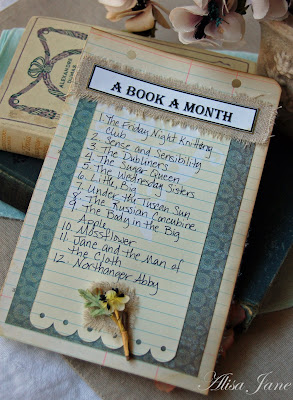 ALEXANDRE
DUMAS
A BOOK A MONTH
1. The Friday Night Knitting
club
2. Sense and Sensibility
3. The Dubliners
4. The Sugar Queen
5. The Wednesday Sisters
6. Little, Big
7. Under the Tuscan Sun
8. The Russian Concubine
9. The Body in the Big
Apple
10. Mossflower
11. Jane and the Man of
the Cloth
12. Northanger Abby
Alisa Jane